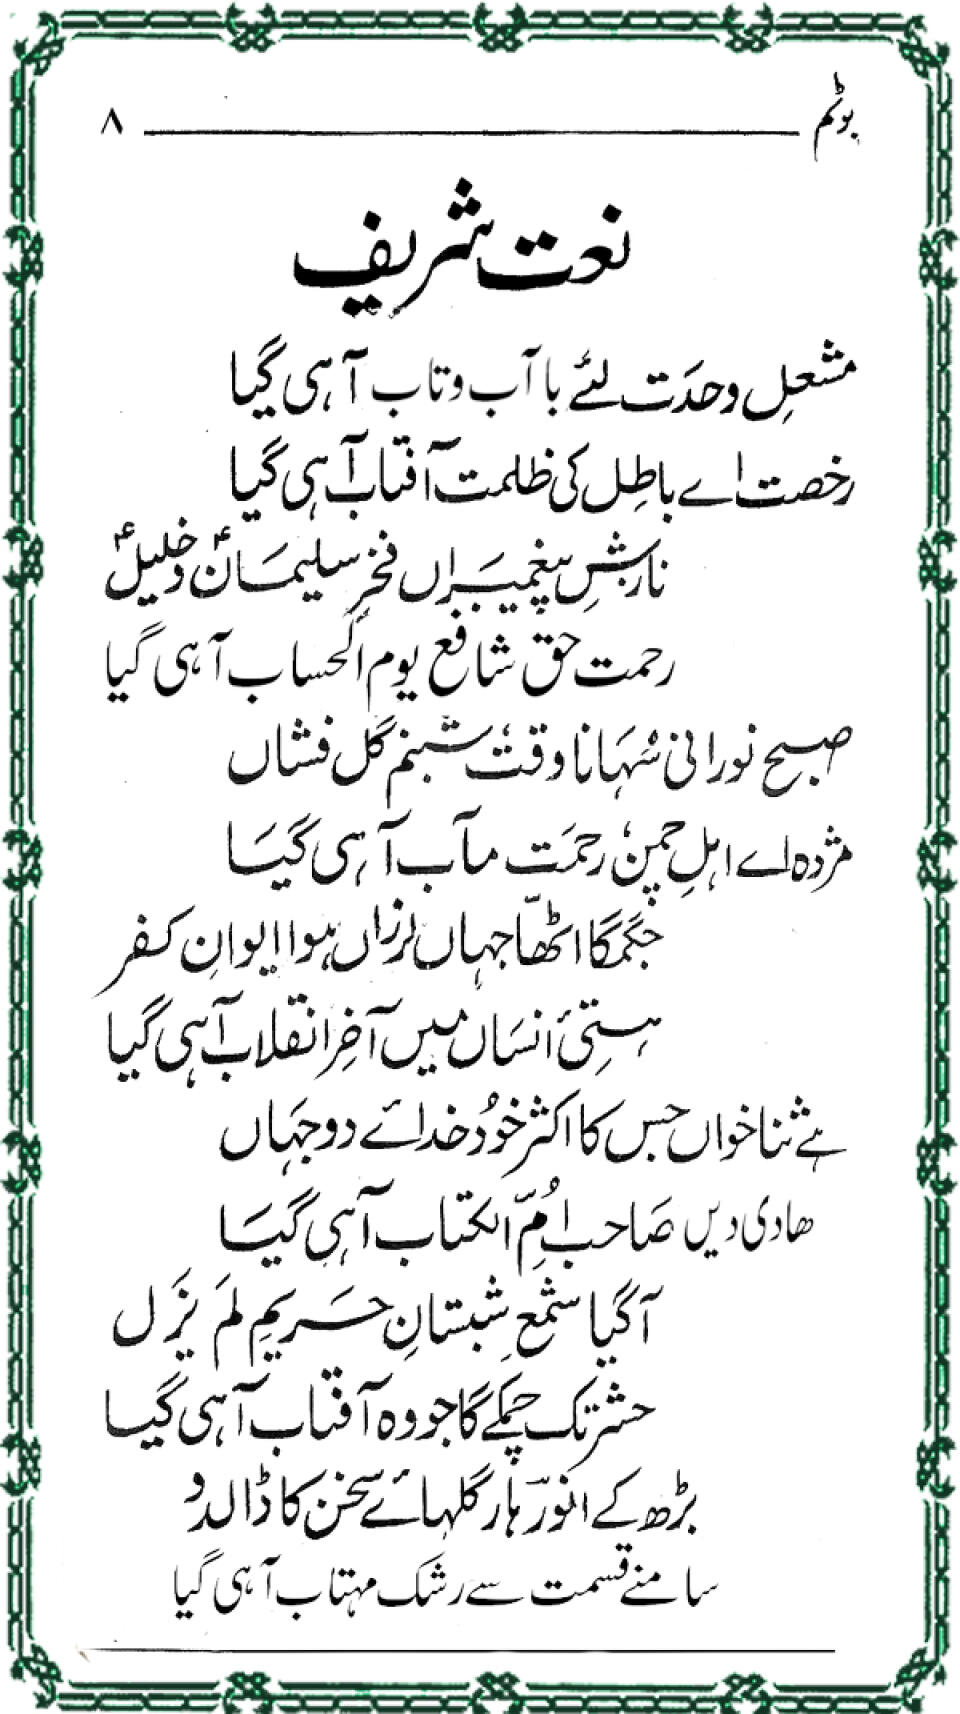 بوٹم ۸
نعت شریف
مشعلِ وحدَت لئے با آب و تاب آہی گیا
رخصت اے باطِل کی ظلمت آفتاب آہی گیا
نازشِ پیغمبراں فخرِ سلیمانؑ و خلیلؑ
رحمت حق شافع یوم الحساب آہی گیا
صبح نورانی سُہَانا وقت، شبنم گل فشاں
مژدہ اے اہلِ چمن، رحمَت مآب آہی گیَا
جگمگا اٹھّا جہاں لرزاں ہوا ایوانِ کفر
ہستیٔ انسَاں میں آخِر انقلاب آہی گیا
ہے ثنا خواں جس کا اکثر خُود خدائے دو جہَاں
ھادی دیں صَاحب اُمِّ الکتاب آہی گیَا
آگیا شمعِ شبستانِ حَریمِ لمَ یَزَل
حشر تک چمکے گا جو وہ آفتاب آہی گیا
بڑھ کے انورؔ ہار گلہائے سخن کا ڈالدو
سامنے قسمت سے رشک مہتاب آہی گیا